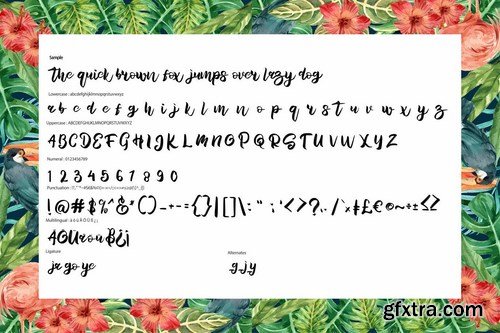 Sample
the quick brown fox jumps over lazy dog
Lowercase : abcdefghijklmnopqrstuvwxyz
a b c d e f g h i j k l m n o p q r s t u v w x y z
Uppercase : ABCDEFGHIJKLMNOPQRSTUVWXYZ
A B C D E F G H I J K L M N O P Q R S T U V W X Y Z
Numeral : 0123456789
1 2 3 4 5 6 7 8 9 0
Punctuation :
!@#$%^&*()-+-={}[]\:";'<>?,./
Multilingual :
Ligature
jr go ye
Alternates
g j y
gfxtra.com